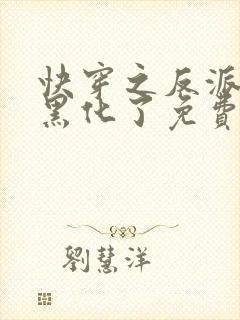 快穿之反派
黑化了免費
劉慧洋